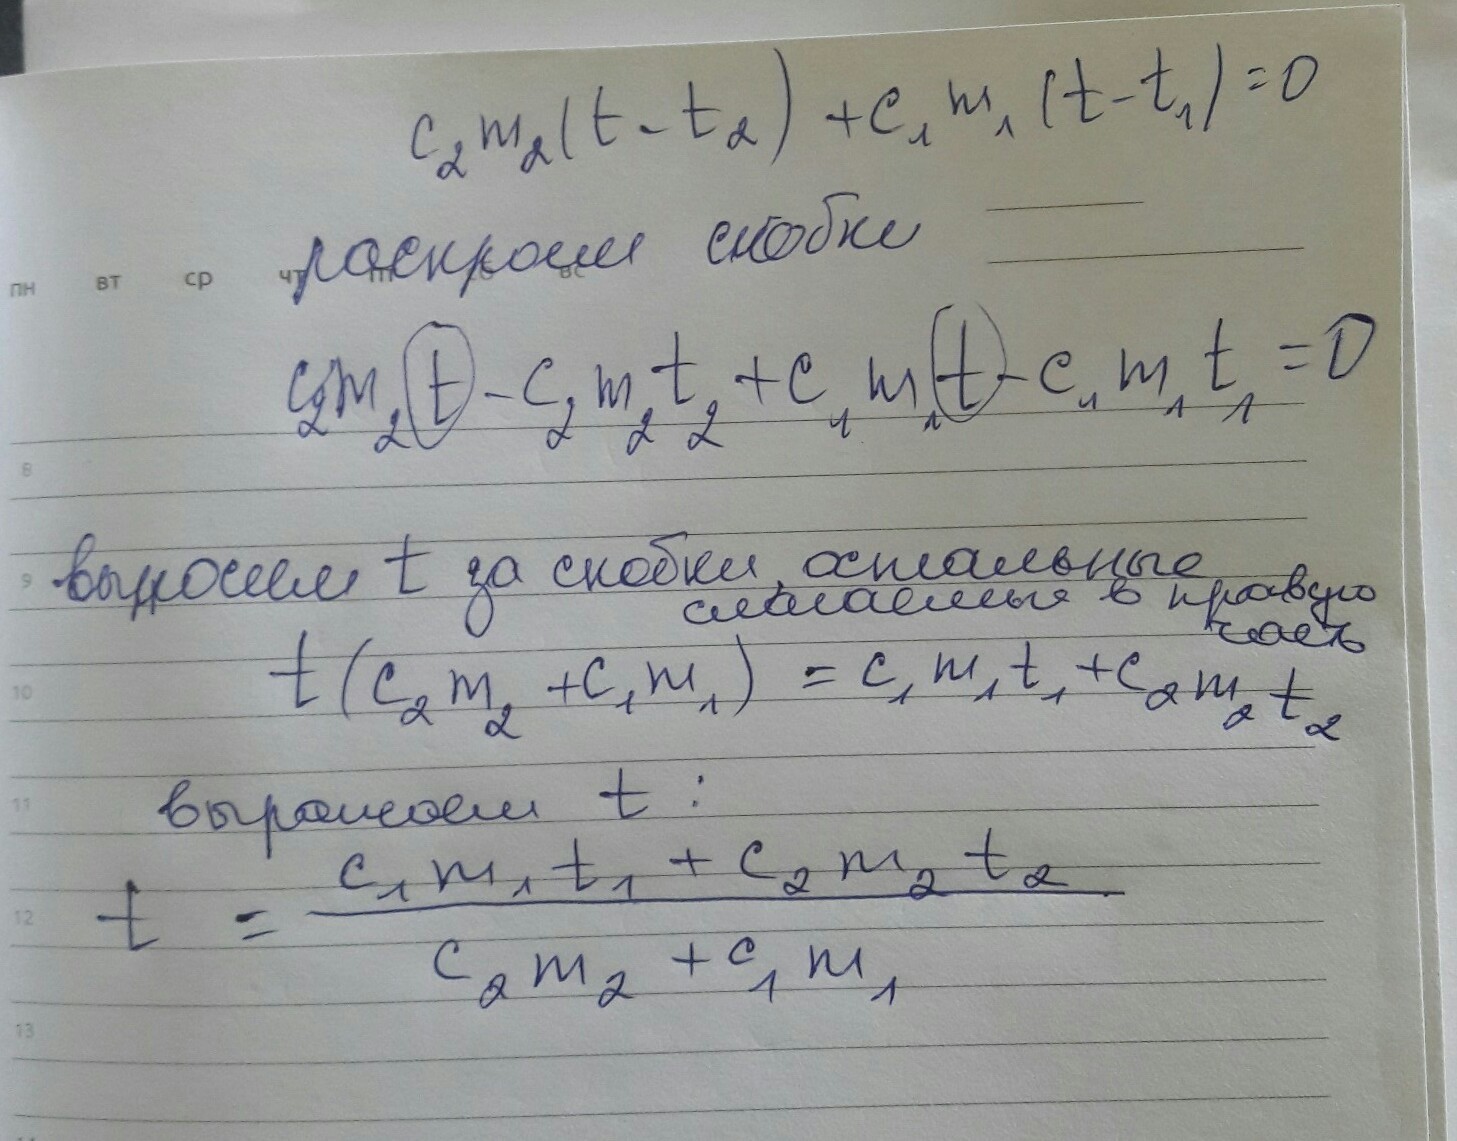 c₂m₂(t-t₂)+c₁m₁(t-t₁)=0
раскроем скобки
пн вт ср чт
c₂m₂t-c₂m₂t₂+c₁m₁t-c₁m₁t₁=0
8
9 выносим t за скобки, остальные
слагаемые в правую
часть
10 t(c₂m₂+c₁m₁)=c₁m₁t₁+c₂m₂t₂
11 выражаем t:
c₁m₁t₁+c₂m₂t₂
12 t=
c₂m₂+c₁m₁
13